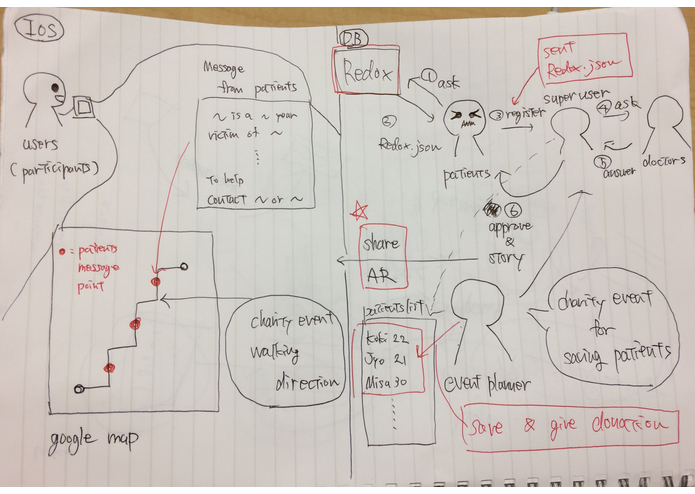 IOS
users
(participants)
Message
from patients
~ is a ~ year
victim of ~
To help
contact ~ or ~
= patients
message
point
charity event
walking
direction
google map
DB
Redox
① ask
② Redox.json
patients
③ register
sent
Redox.json
super user
④ ask
⑤ answer
doctors
⑥
approve
&
story
share
AR
patients list
Koki 22
Jyo 21
Misa 30
event planner
charity event
for
saving patients
save & give donation